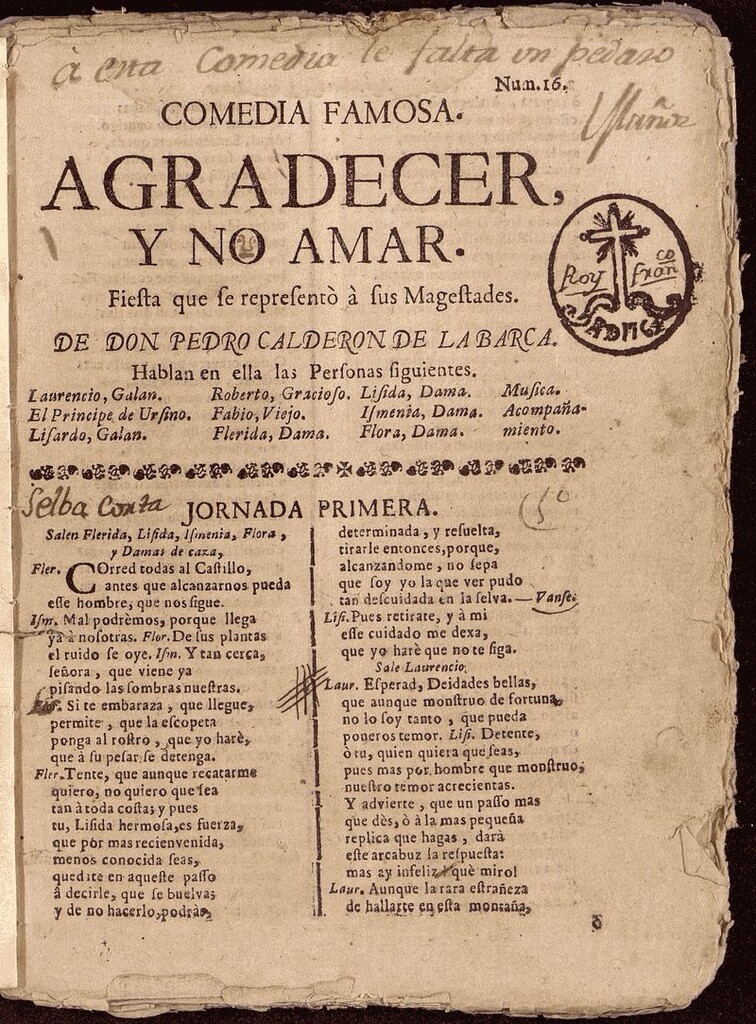 à esta Comedia le falta un pedaso
Num.16.
Muñoz
COMEDIA FAMOSA.
AGRADECER,
Y NO AMAR.
Fieſta que ſe repreſentò à ſus Mageſtades.
Roy Fran^co
DE DON PEDRO CALDERON DE LA BARCA.
Hablan en ella las Perſonas ſiguientes.
Laurencio, Galan. Roberto, Gracioſo. Liſida, Dama. Muſica.
El Principe de Urſino. Fabio, Viejo. Iſmenia, Dama. Acompaña-
Liſardo, Galan. Flerida, Dama. Flora, Dama. miento.
Selba Corta
JORNADA PRIMERA.
Salen Flerida, Liſida, Iſmenia, Flora,
y Damas de caza,
Fler. COrred todas al Caſtillo,
antes que alcanzarnos pueda
eſſe hombre, que nos ſigue.
Iſm. Mal podrèmos, porque llega
ya à noſotras. Flor. De ſus plantas
el ruido ſe oye. Iſm. Y tan cerca,
ſeñora, que viene ya
piſando las ſombras nueſtras.
Liſ. Si te embaraza, que llegue,
permite, que la eſcopeta
ponga al roſtro, que yo harè,
que à ſu peſar ſe detenga.
Fler. Tente, que aunque recatarme
quiero, no quiero que ſea
tan à toda coſta; y pues
tu, Liſida hermoſa, es fuerza,
que por mas recienvenida,
menos conocida ſeas,
quedate en aqueſte paſſo
à decirle, que ſe buelva;
y de no hacerlo, podràs,
determinada, y reſuelta,
tirarle entonces, porque,
alcanzandome, no ſepa
que ſoy yo la que ver pudo
tan deſcuidada en la ſelva.— Vanſe.
Liſ. Pues retirate, y à mi
eſſe cuidado me dexa,
que yo harè que no te ſiga.
Sale Laurencio.
Laur. Eſperad, Deidades bellas,
que aunque monſtruo de fortuna,
no lo ſoy tanto, que pueda
poneros temor. Liſi. Detente,
ò tu, quien quiera que ſeas,
pues mas por hombre que monſtruo,
nueſtro temor acrecientas.
Y advierte, que un paſſo mas
que dès, ò à la mas pequeña
replica que hagas, darà
eſte arcabuz la reſpueſta:
mas ay infeliz! què miro!
Laur. Aunque la rara eſtrañeza
de hallarte en eſta montaña,